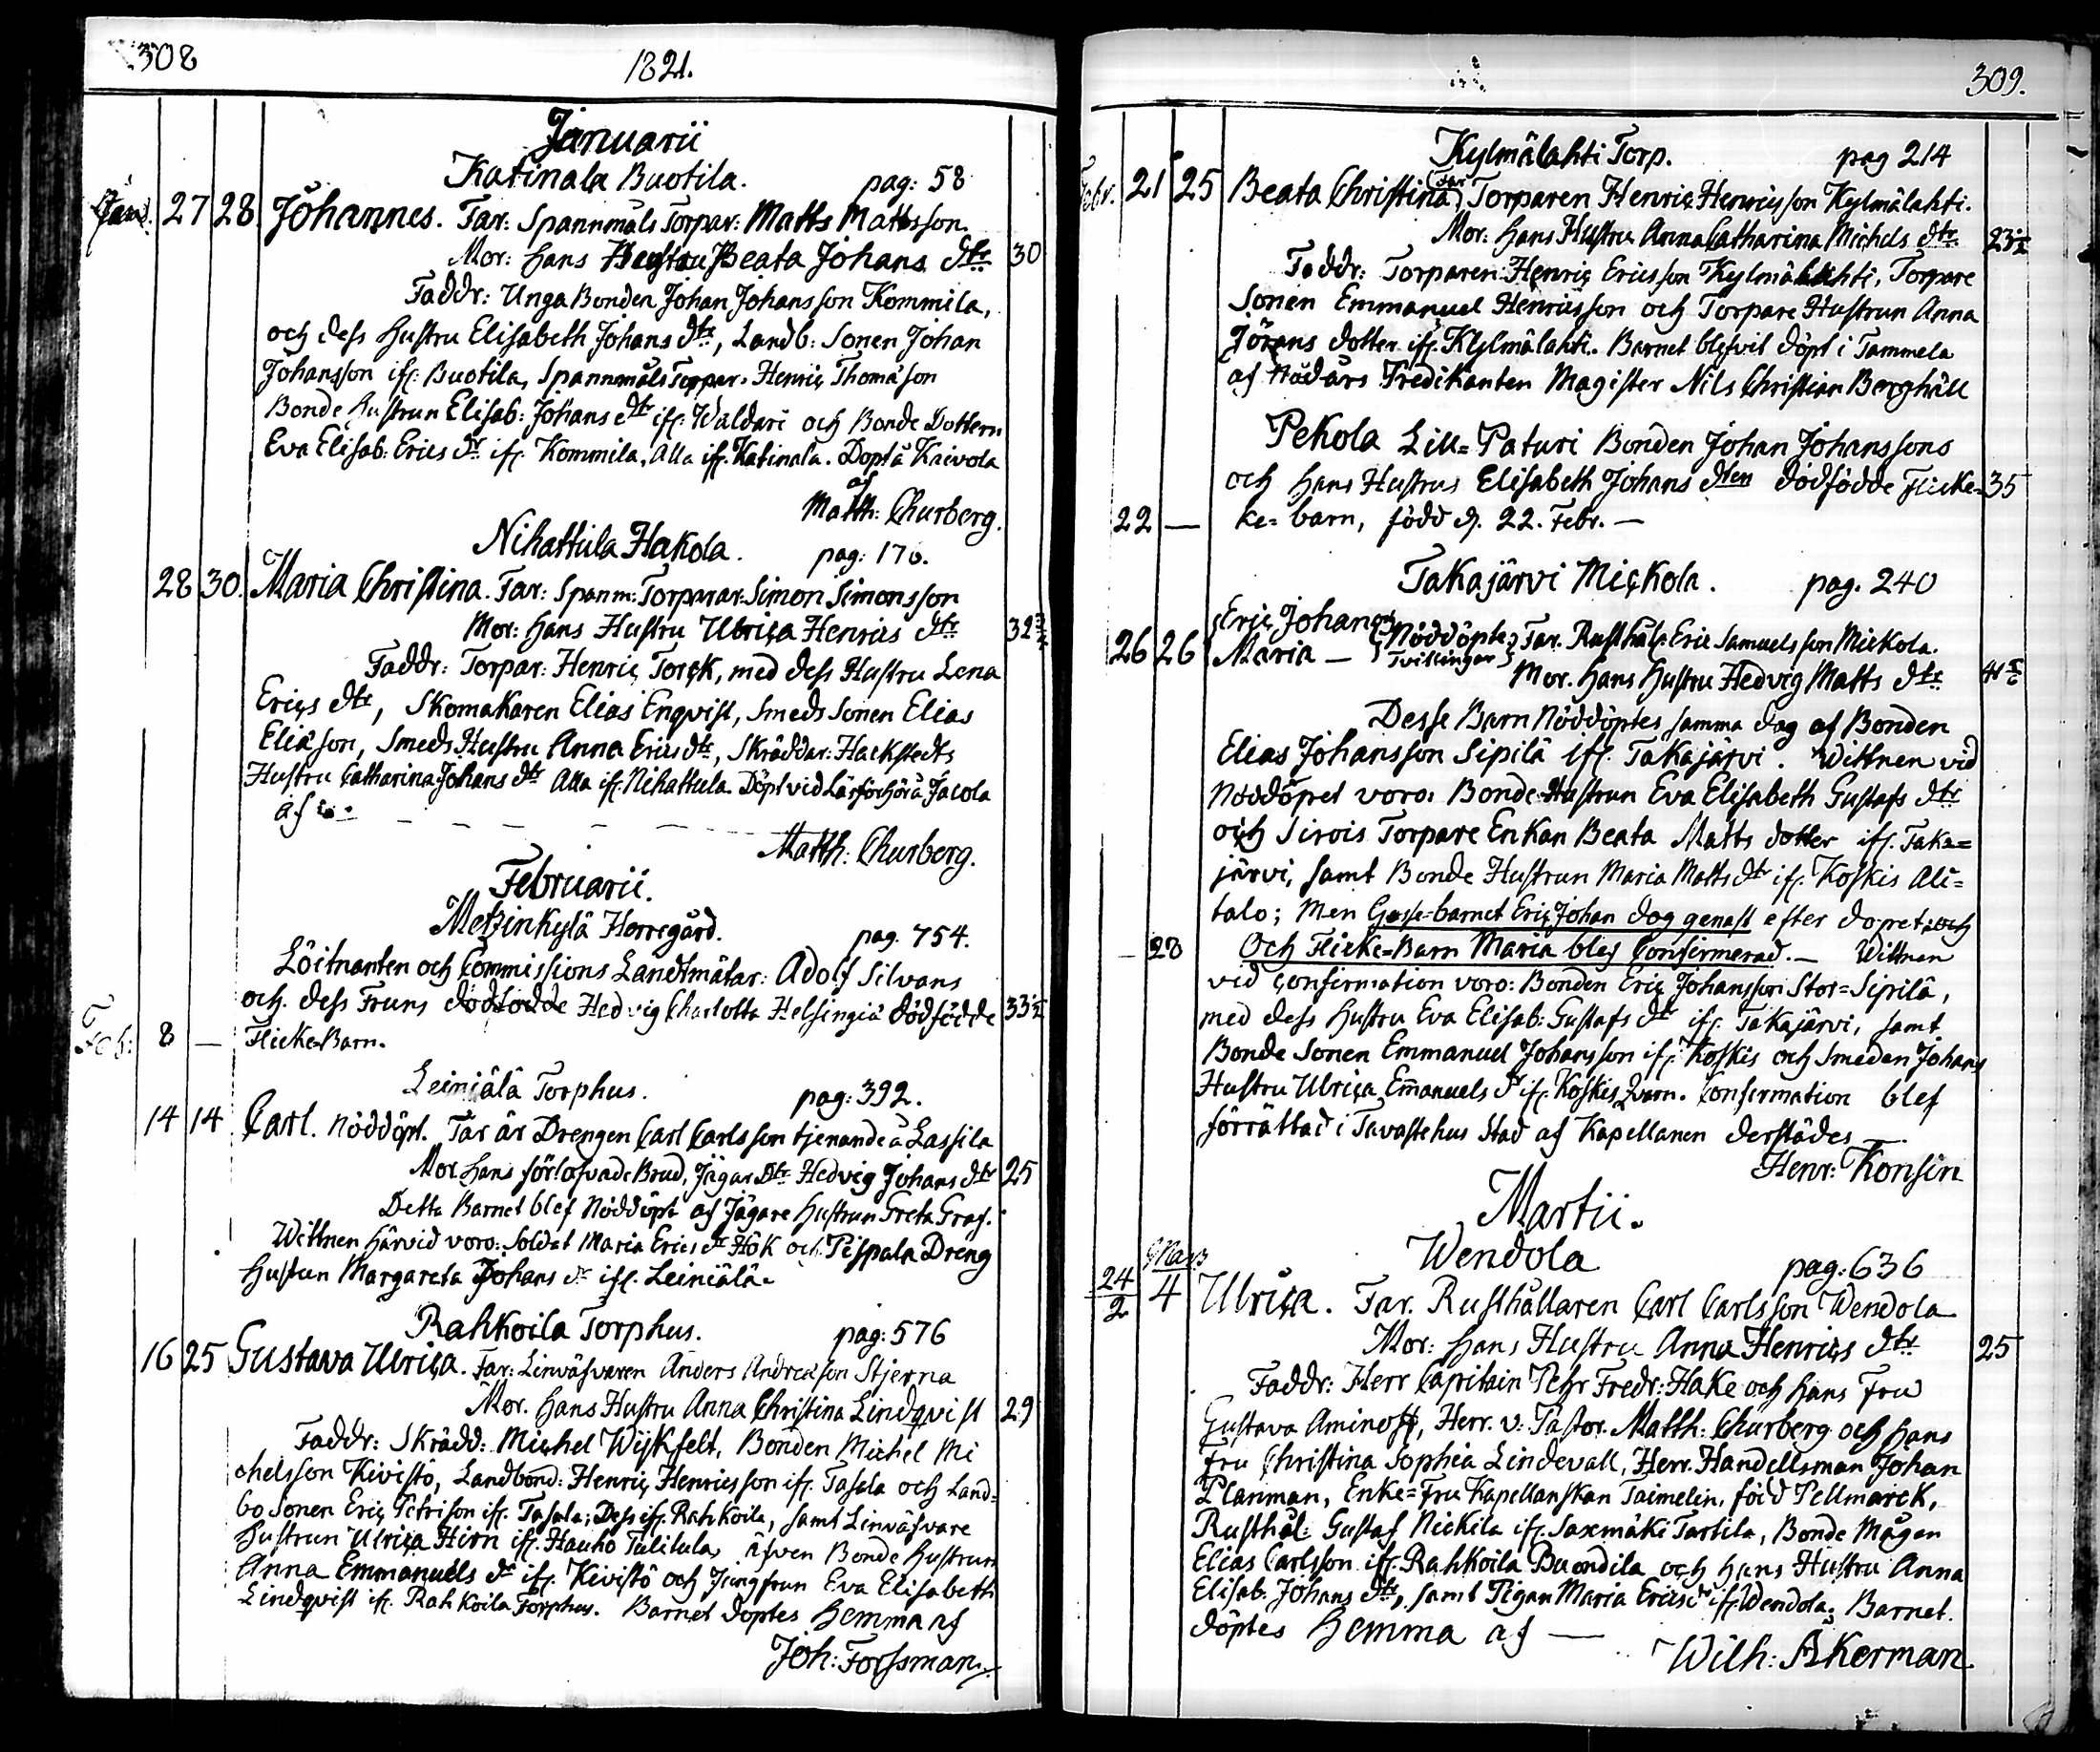 308
1821.
Januarii
Katinala Buotila. pag: 58
Jan. 27 28 Johannes. Far: Spannmåls Torpar: Matts Mattsson.
Mor: hans Hustru Beata Johans dtr 30
Faddr: Unga Bonden Johan Johansson Kommila,
och dess hustru Elisabeth Johans dtr, Landb: Sonen Johan
Johansson ifr: Buotila, Spannmåls Torpar: Henric Thomäson
Bonde hustrun Elisab: Johans dtr ifr: Waldari och Bonde Dottern
Eva Elisab: Erics dr ifr. Kommila, Alla ifr. Katinala. Döpt å Kaivola
af
Matth: Churberg.
Nihattula Hakola. pag: 170.
28 30 Maria Christina. Far: Spanm: Torparar. Simon Simonsson
Mor: hans Hustru Ulrica Henrics dtr 32
Faddr: Torpar: Henric Torck, med dess Hustru Lena
Erics dtr, Skomakaren Elias Enqvist, Smeds Sonen Elias
Eliäson, Smeds Hustru Anna Erics dtr, Skräddar: Hackstedts
Hustru Catharina Johans dtr Alla ifr. Nihattula. Döpt vid Läsförhör å Jacola
af
Matth: Churberg.
Februarii.
Metzinkylä Herregård. pag. 754.
Löitnanten och Commissions Landtmätar: Adolf Silvans
och dess Fruns dödfödde Hedvig Charlotta Helsingia dödfödde 33½
Feb: 8 — Flicke-Barn.
Leiniälä Torphus. pag: 392.
14 14 Carl. Nöddöpt. Far är Drengen Carl Carlsson tjenande å Lassila
Mor. hans förlofvade Brud, Jägar Dtr Hedvig Johans dtr 25
Detta Barnet blef Nöddöpt af Jägare hustrun Greta Graf.
Wittnen härvid voro: Soldat Maria Erics dr Hök och Pispala Dreng
hustrun Margareta Johans dr ifr. Leiniälä.
Rahkoila Torphus. pag: 576
16 25 Gustava Ulrica. Far: Linväfvaren Anders Andreäson Stjerna
Mor. hans Hustru Anna Christina Lindqvist 29
Faddr: Skrädd: Michel Wijkfelt, Bonden Michel Mi
chelsson Kivistö, Landbond: Henric Henricsson ifr. Tasala och Land=
bo Sonen Eric Petrison ifr. Tasala; Dess ifr. Rahkoila, samt Linväfvare
hustrun Ulrica Hirn ifr. Hauho Tulitula, äfven Bonde hustrun
Anna Emmanuels dr ifr. Kivistö och Jungfrun Eva Elisabeth
Lindqvist ifr. Rahkoila Torphus. Barnet döptes hemma af
Joh: Forssman.
309.
Kylmälahti Torp. pag 214
Febr. 21 25 Beata Christina, Far Torparen Henric Henricsson Kylmälahti.
Mor: hans Hustru Anna Catharina Michels dtr 23½
Faddr: Torparen Henric Ericsson Kylmälahti, Torpare
Sonen Emmanuel Henricsson och Torpare Hustrun Anna
Jörans dotter ifr. Kylmälahti. Barnet blefvit döpt i Tammela
af Nödårs Predikanten Magister Nils Christian Berghäll
Pekola Lill=Paturi Bonden Johan Johanssons
och hans Hustrus Elisabeth Johans dtern dödfödde Flicke= 35
22 — ke=barn, född d. 22. Febr. —
Takajärvi Mickola. pag. 240
Eric Johan
26 26 Maria — Nöddöpte Tvillingar Far. Rusthål: Eric Samuelsson Mickola.
Mor. hans hustru Hedvig Matts dtr 41
Desse Barn Nöddöptes samma dag af Bonden
Elias Johansson Sipilä ifr. Takajärvi. Wittnen vid
Nöddöpet voro: Bonde-Hustrun Eva Elisabeth Gustafs dtr
och Sirois Torpare Enkan Beata Matts dotter ifr. Taka=
järvi, samt Bonde Hustrun Maria Matts dtr ifr. Koskis Ali=
talo; Men Gosse-barnet Eric Johan dog genast efter dopet och
— 28 Och Flicke=Barn Maria blef Confirmerad. — Wittnen
vid Confirmation voro: Bonden Eric Johansson Stor=Sipilä,
med dess hustru Eva Elisab: Gustafs dr ifr. Takajärvi, samt
Bonde Sonen Emmanuel Johansson ifr. Koskis och Smeden Johans
Hustru Ulrica Emanuels dr ifr. Koskis Qvarn. Confirmation blef
förrättad i Tavastehus Stad af Kapellanen derstädes
Henr: Konsin
Martii.
Wendola pag: 636
Mars
24/2 4 Ulrica. Far. Rusthållaren Carl Carlsson Wendola
Mor: hans Hustru Anna Henrics dtr 25
Faddr: Herr Capitain Pehr Fredr: Hake och hans Fru
Gustava Aminoff, Herr. v: Pastor. Matth: Churberg och hans
Fru Christina Sophia Lindevall, Herr. Handelsman Johan
Planman, Enke=Fru Kapellanskan Taimelin, född Pellmarck,
Rusthål: Gustaf Nickila ifr. Saxmäki Partila, Bonde Mågen
Elias Carlsson ifr. Rahkoila Buondila och hans Hustru Anna
Elisab. Johans dtr, samt Pigan Maria Erics dr ifr. Wendola; Barnet
döptes hemma af —
Wilh: Åkerman